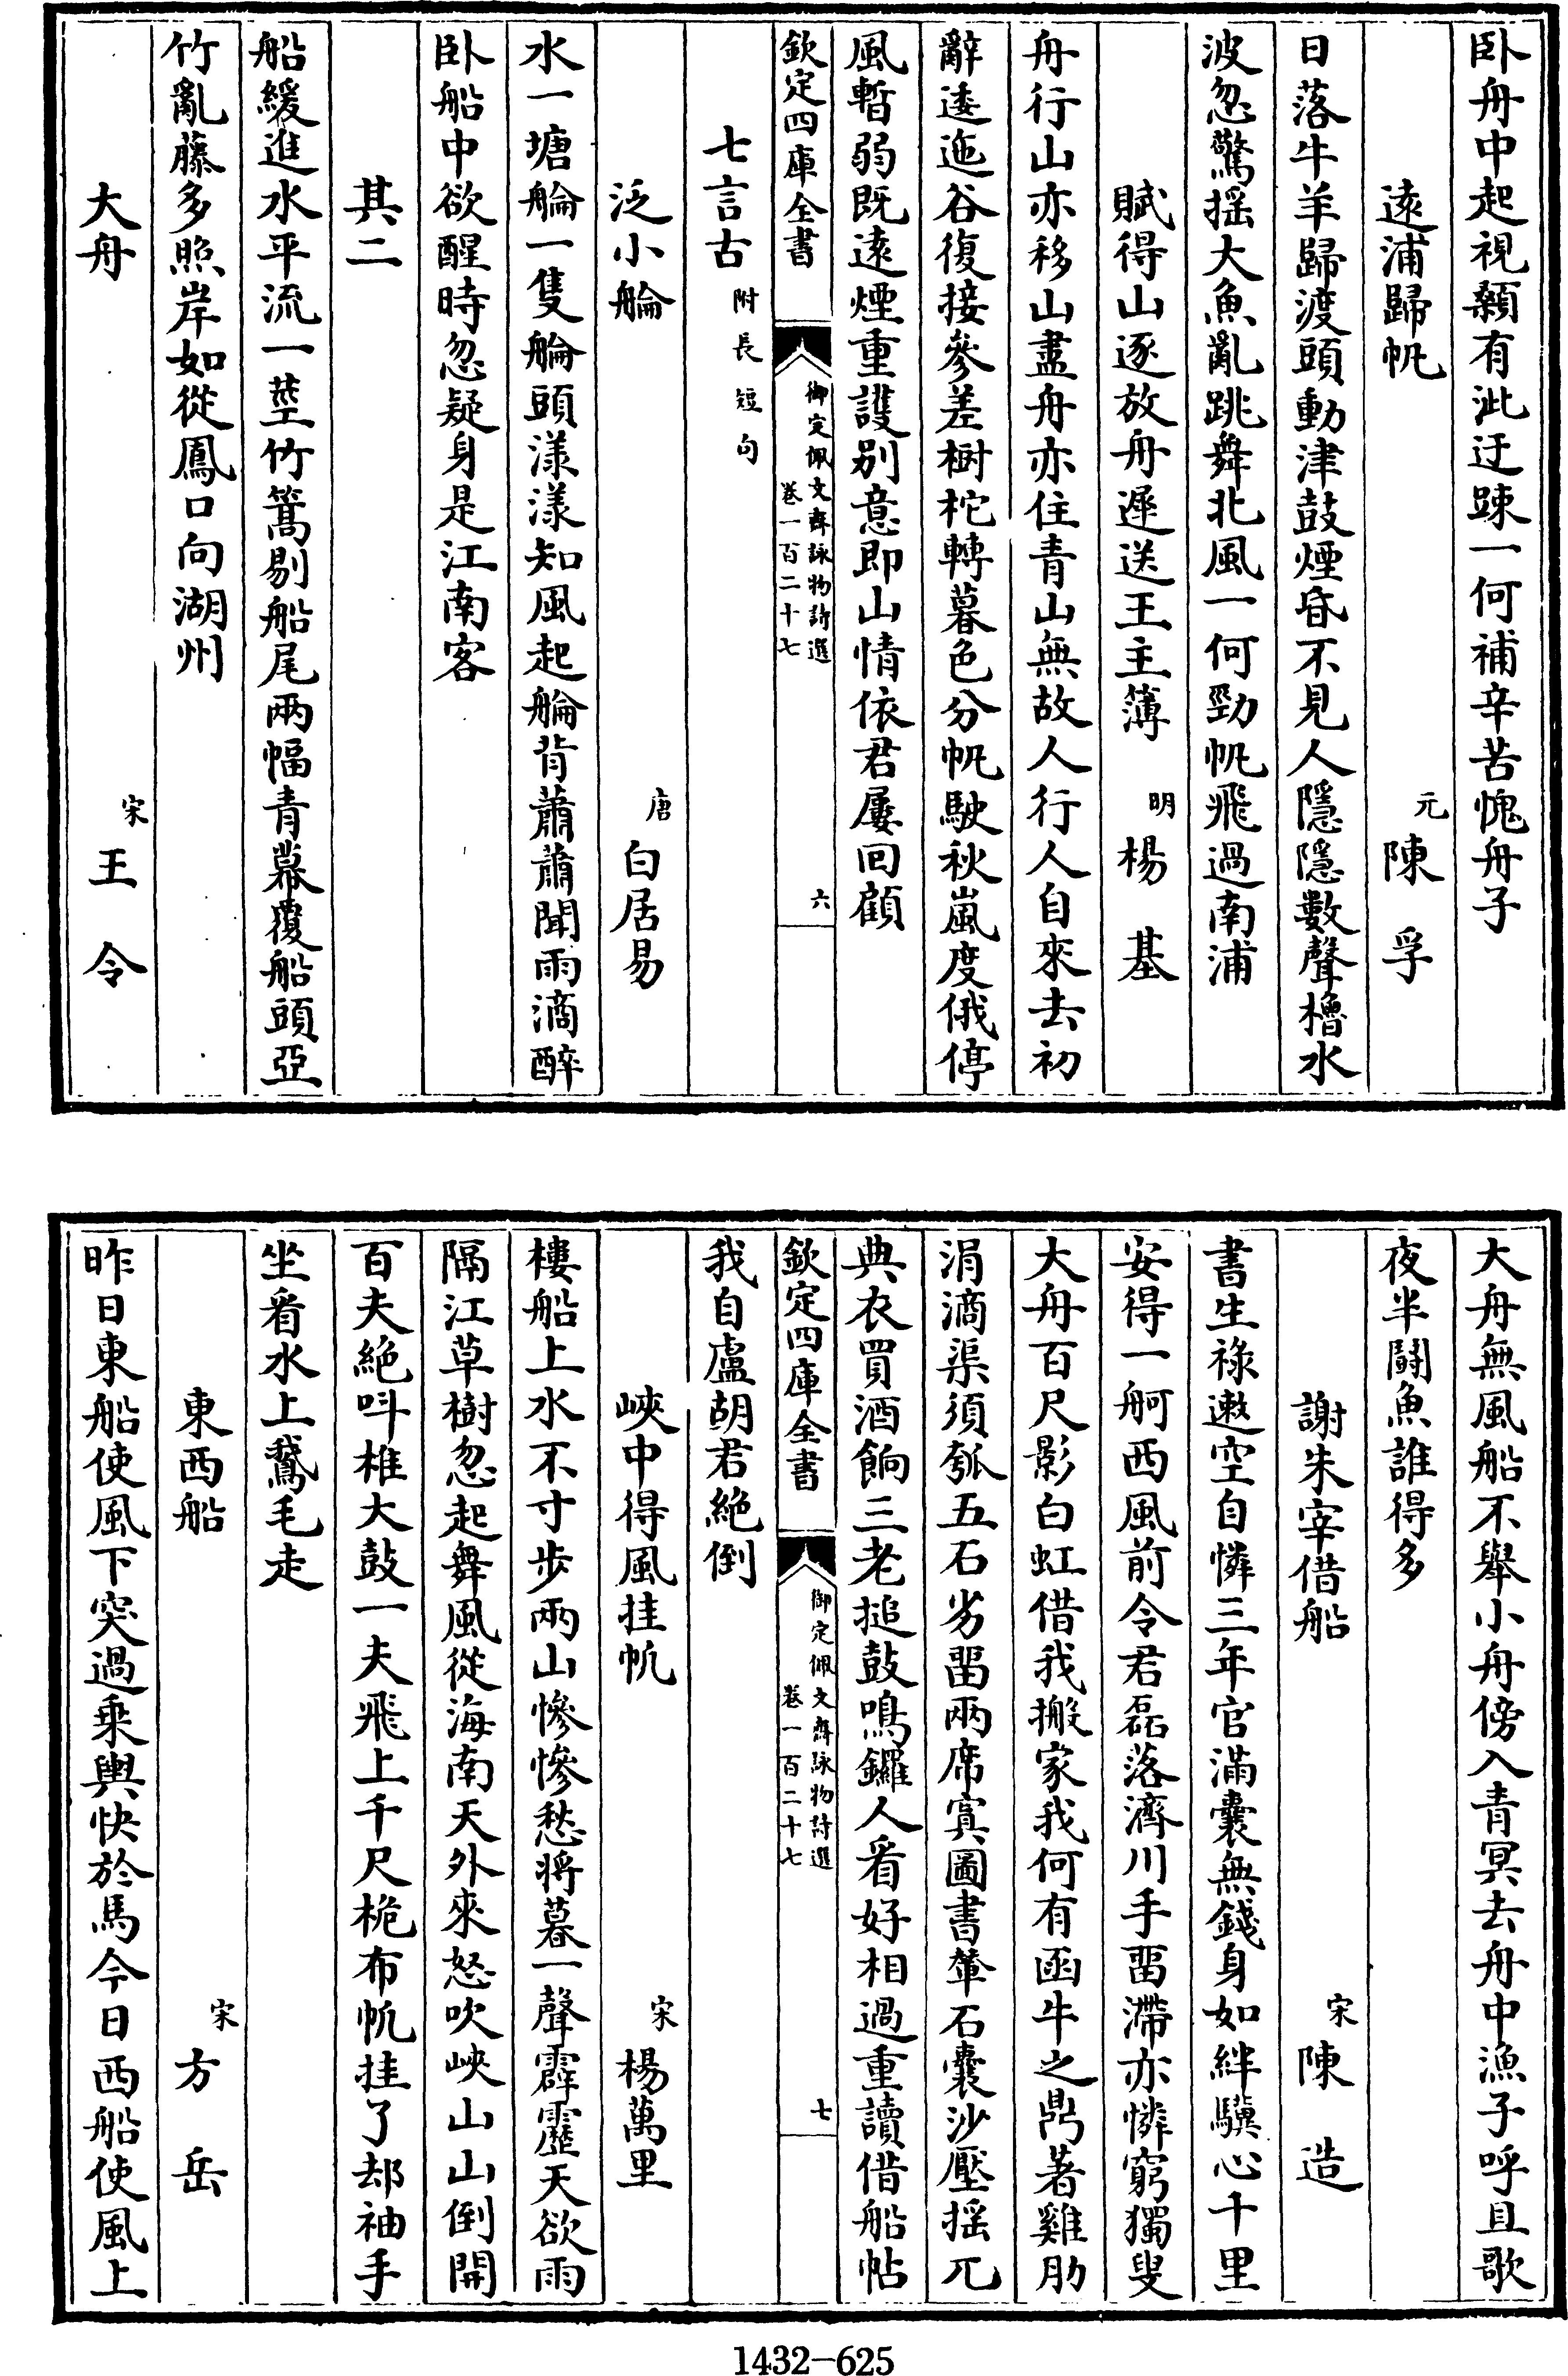 卧舟中起視顙有泚迂踈一何補辛苦愧舟子
遠浦歸帆
元
陳孚
日落牛羊歸渡頭動津鼓煙昏不見人隱隱數聲櫓水
波忽驚揺大魚亂跳舞北風一何勁帆飛過南浦
賦得山逐放舟遲送王主簿
明
楊基
舟行山亦移山盡舟亦住青山無故人行人自來去初
辭逶迤谷復接參差樹柁轉暮色分帆駛秋嵐度俄停
風暫弱既遠煙重護别意即山情依君屢回顧
欽定四庫全書
御定佩文齋詠物詩選
卷一百二十七
六
七言古
附長短句
泛小䑳
唐
白居易
水一塘䑳一隻䑳頭漾漾知風起䑳背蕭蕭聞雨滴醉
卧船中欲醒時忽疑身是江南客
其二
船緩進水平流一莖竹篙剔船尾兩幅青幕覆船頭亞
竹亂藤多照岸如從鳳口向湖州
大舟
宋
王令
大舟無風船不舉小舟傍入青冥去舟中漁子呼且歌
夜半闘魚誰得多
謝朱宰借船
宋
陳造
書生祿遬空自憐三年官滿囊無錢身如絆驥心千里
安得一舸西風前令君磊落濟川手畱滯亦憐窮獨叟
大舟百尺影白虹借我搬家我何有函牛之鼎著雞肋
涓滴渠須瓠五石劣畱兩席寘圖書輦石囊沙壓揺兀
典衣買酒餉三老搥鼓鳴鑼人看好相過重讀借船帖
欽定四庫全書
御定佩文齋詠物詩選
卷一百二十七
七
我自盧胡君絶倒
峽中得風挂帆
宋
楊萬里
樓船上水不寸步兩山慘慘愁將暮一聲霹靂天欲雨
隔江草樹忽起舞風從海南天外來怒吹峽山山倒開
百夫絶呌椎大鼓一夫飛上千尺桅布帆挂了却袖手
坐看水上鵞毛走
東西船
宋
方岳
昨日東船使風下突過乘輿快於馬今日西船使風上
1432-625